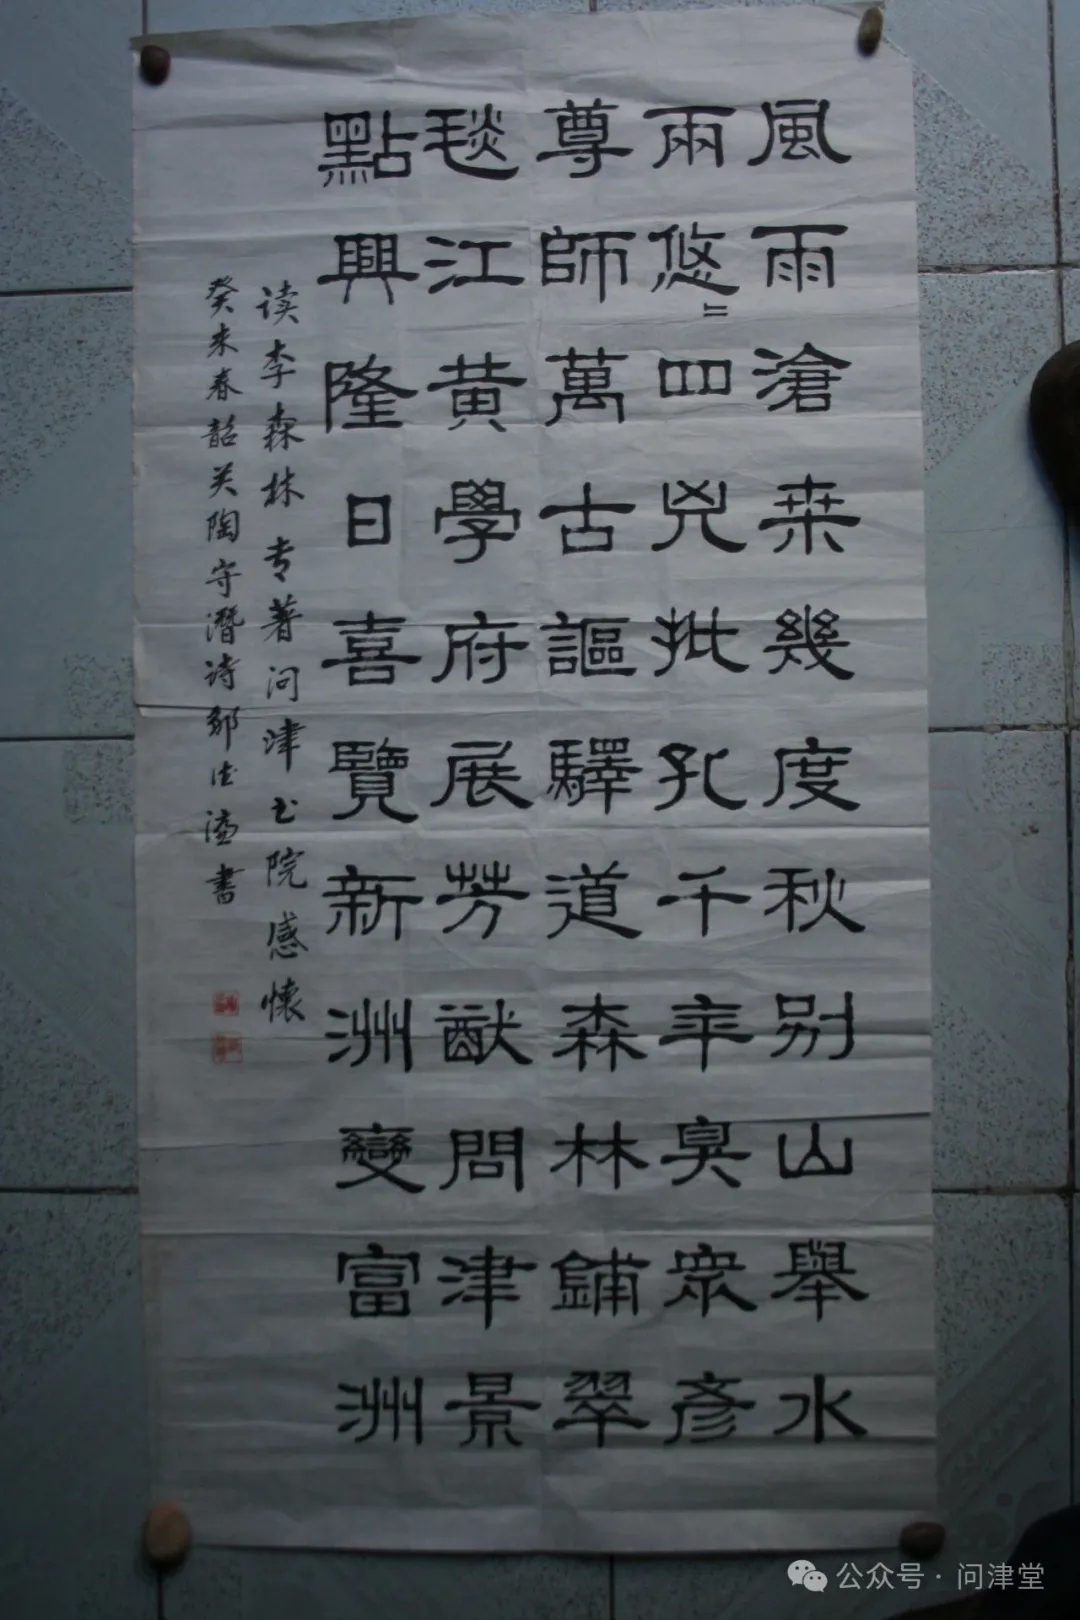 風雨滄桒幾度秋别山舉水
兩悠〻四兇批孔千年臭衆彥
尊師萬古謳驛道森林鋪翠
毯江黄學府展芳猷問津景
點興隆日喜覽新洲變富洲
读李森林专著问津书院感懷
癸未春韶关陶守潛诗邹書
公众号·问津堂